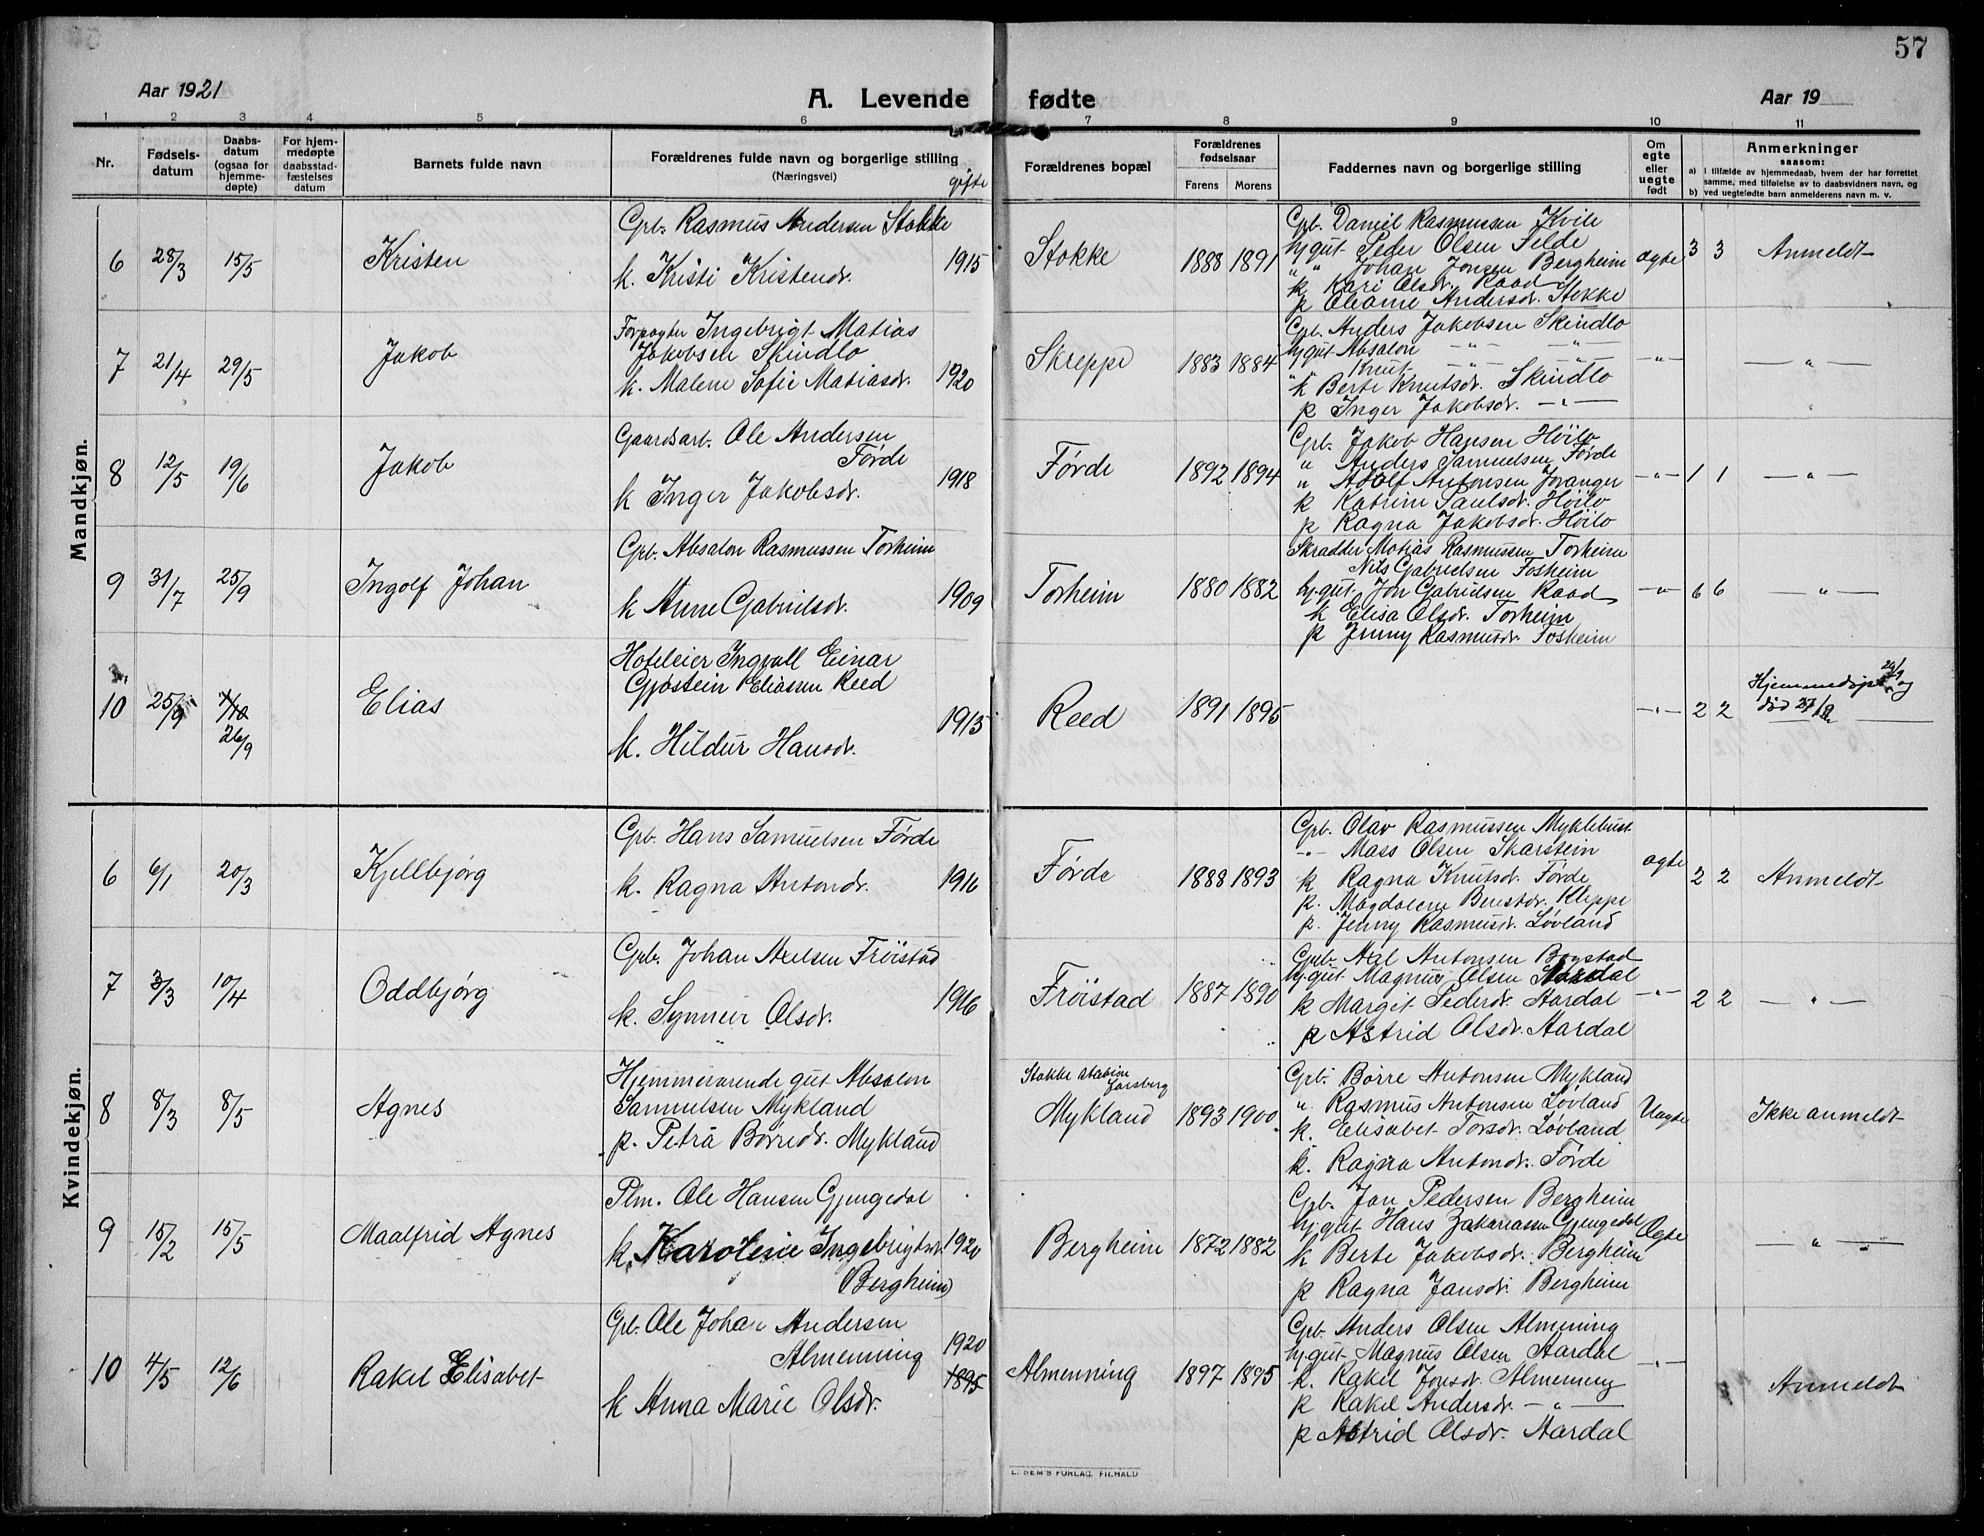 57
Aar 1921
A. Levende fødte
Aar 19
1 2 3 4 5 6 7 8 9 10 11
Nr.
Fødsels-
datum
Daabs-
datum
(ogsaa for
hjemme-
døpte)
For hjem-
medøpte
daabsstad-
fæstelses
datum
Barnets fulde navn
Forældrenes fulde navn og borgerlige stilling
(Næringsvei)
gifte
Forældrenes bopæl
Forældrenes
fødselsaar
Farens Morens
Faddernes navn og borgerlige stilling
Om
egte
eller
uegte
født
Anmerkninger
saasom:
a) I tilfælde av hjemmedaab, hvem der har forrettet
samme, med tilføielse av to daabsvidners navn, og
b) ved uegtefødte barn anmelderens navn m. v.
Mandkjøn.
6 28/3 15/5 Kristen
Grb. Rasmus Andersen Stokke
k. Kristi Kristendr. 1915
Stokke 1888 1891
Grb. Daniel Rasmussen Kvile
hj.gut Peder Olsen Felde
" " Johan Jonsen Bergheim
k. Kari Olsdr. Raad
p Oleanne Andersdr. Stokke
ægte 3 3 Anmeldt
7 21/4 29/5 Jakob
Forpagter Ingebrigt Matias
Jakobsen Skindlo
k. Malene Sofie Matiasdr. 1920
Skreppe 1883 1884
Grb. Anders Jakobsen Skindlo
hj.gut Absalon — " — — " —
" " Knut — " — — " —
k Berte Knutsdr. Skindlo
p Inger Jakobsdr. — " —
— " — — " —
8 12/5 19/6 Jakob
Gaardsarb. Ole Andersen
Førde
k Inger Jakobsdr. 1918
Førde 1892 1894
Grb. Jakob Hansen Høilo
" Anders Samuelsen Førde
" Adolf Antonsen Joranger
k Katrine Paulsdr. Høilo
p Ragna Jakobsdr. Høilo
— " — 1 1 — " —
9 31/7 25/9 Ingolf Johan
Grb. Absalon Rasmussen Torheim
k Anne Gabrielsdr. 1909
Torheim 1880 1882
Skrædder Matias Rasmussen Torheim
Nils Gabrielsen Fosheim
hj.gut. Jon Gabrielsen Raad
k Elisa Olsdr. Torheim
p Jenny Rasmusdr. Fosheim
— " — 6 6 — " —
10 25/9 7/10
26/9 Elias
Hoteleier Ingvall Einar
Gjøstein Eliassen Reed
k. Hildur Hansdr. 1915
Reed 1891 1895
— " — 2 2
Hjemmedøpt og
død
Kvindekjøn.
6 6/1 20/3 Kjellbjørg
Grb. Hans Samuelsen Førde
k. Ragna Antondr. 1916
Førde 1888 1893
Grb. Olav Rasmussen Myklebust
— " — Mass Olsen Skarstein
k Ragna Knutsdr. Førde
p. Magdalene Berestdr. Kleppe
p. Jenny Rasmusdr. Løvland
ægte 2 2 Anmeldt
7 3/3 10/4 Oddbjørg
Grb. Johan Axelsen Frøistad
k. Synneir Olsdr. 1916
Frøistad 1887 1890
Grb. Axel Antonsen Bogstad
hj.gut Magnus Olsen Aardal
k Margit Pedersdr. Aardal
p Astrid Olsdr. Aardal
— " — 2 2 — " —
8 8/3 8/5 Agnes
Hjemmeværende gut Absalon
Samuelsen Mykland
p. Petra Børredr. Mykland
Stokke
Mykland 1893 1900.
Grb. Børre Antonsen Mykland
" Rasmus Antonsen Løvland
k. Elisabet Torsdr. Løvland
k. Ragna Antondr. Førde
Uægte Ikke anmeldt
9 15/2 15/5 Maalfrid Agnes
Plm. Ole Hansen Gjengedal
k. Karoline Ingebrigtsdr. 1920
(Bergheim)
Bergheim 1872 1882
Grb. Jon Pedersen Bergheim
hj.gut Hans Zakariassen Gjengedal
k Berte Jakobsdr. Bergheim
p Ragna Jansdr. Bergheim
Ægte — " —
10 4/5 12/6 Rakel Elisabet
Grb. Ole Johan Andersen
Almenning 1920
1895
k Anna Marie Olsdr.
Almenning 1897 1895
Grb. Anders Olsen Almening
hj.gut Magnus Olsen Aardal
k. Rakel Jonsdr. Almening
p Rakel Andersdr. — " —
p Astrid Olsdr. Aardal
— " — Anmeldt
L. SEM'S FORLAG, FR.HALD